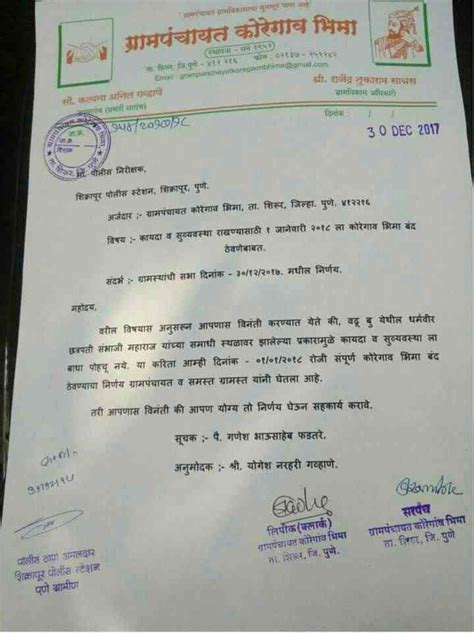 ग्रामपंचायत कोरेगाव भिमा
ता. शिरुर, जि.पुणे - ४१२ २१६
Email : grampanchayatkoregaonbhima@gmail.com
सौ. कल्पना अनिल गव्हाणे
श्री. राजेंद्र तुकाराम सात्रस
ग्रामविकास अधिकारी
दिनांक :
30 DEC 2017
मा. पोलीस निरीक्षक,
शिक्रापुर पोलीस स्टेशन, शिक्रापुर, पुणे.
अर्जदार :- ग्रामपंचायत कोरेगाव भिमा, ता. शिरुर, जिल्हा. पुणे ४१२२१६
विषय :- कायदा व सुव्यवस्था राखण्यासाठी १ जानेवारी २०१८ ला कोरेगाव भिमा बंद
ठेवणेबाबत.
संदर्भ :- ग्रामस्थांची सभा दिनांक - ३०/१२/२०१७. मधील निर्णय.
महोदय,
वरील विषयास अनुसरून आपणास विनंती करण्यात येते की, वढू बु येथील धर्मवीर
छत्रपती संभाजी महाराज यांच्या समाधी स्थळावर झालेल्या प्रकारामुळे कायदा व सुव्यवस्था ला
बाधा पोहचू नये. या करिता आम्ही दिनांक - ०१/०१/२०१८ रोजी संपूर्ण कोरेगाव भिमा बंद
ठेवण्याचा निर्णय ग्रामपंचायत व समस्त ग्रामस्त यांनी घेतला आहे.
तरी आपणास विनंती की आपण योग्य तो निर्णय घेऊन सहकार्य करावे.
सूचक :- पै. गणेश भाऊसाहेब फडतरे.
अनुमोदक :- श्री. योगेश नरहरी गव्हाणे.
लिपीक (क्लार्क)
ग्रामपंचायत कोरेगांव भिमा
ता. शिरुर, जि. पुणे.
सरपंच
ग्रामपंचायत कोरेगांव भिमा
ता. शिरुर, जि. पुणे
पोलीस ठाणे अंमलदार
शिक्रापूर पोलीस स्टेशन
पुणे ग्रामीण